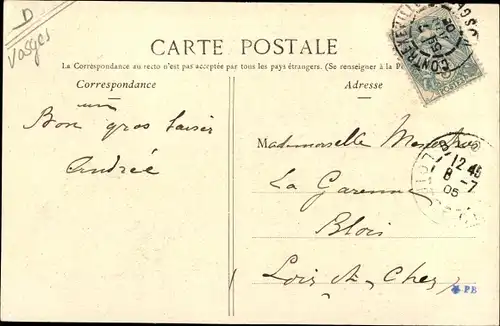 D
Vosges
CARTE POSTALE
La Correspondance au recto n'est pas acceptée par tous les pays étrangers. (Se renseigner à la
Correspondance
Adresse
Bon gros baiser
Andrée
Mademoiselle
La Garenne
Blois
Loir-et-Cher
CONTREXEVILLE
12 45
8 - 7
05
PB